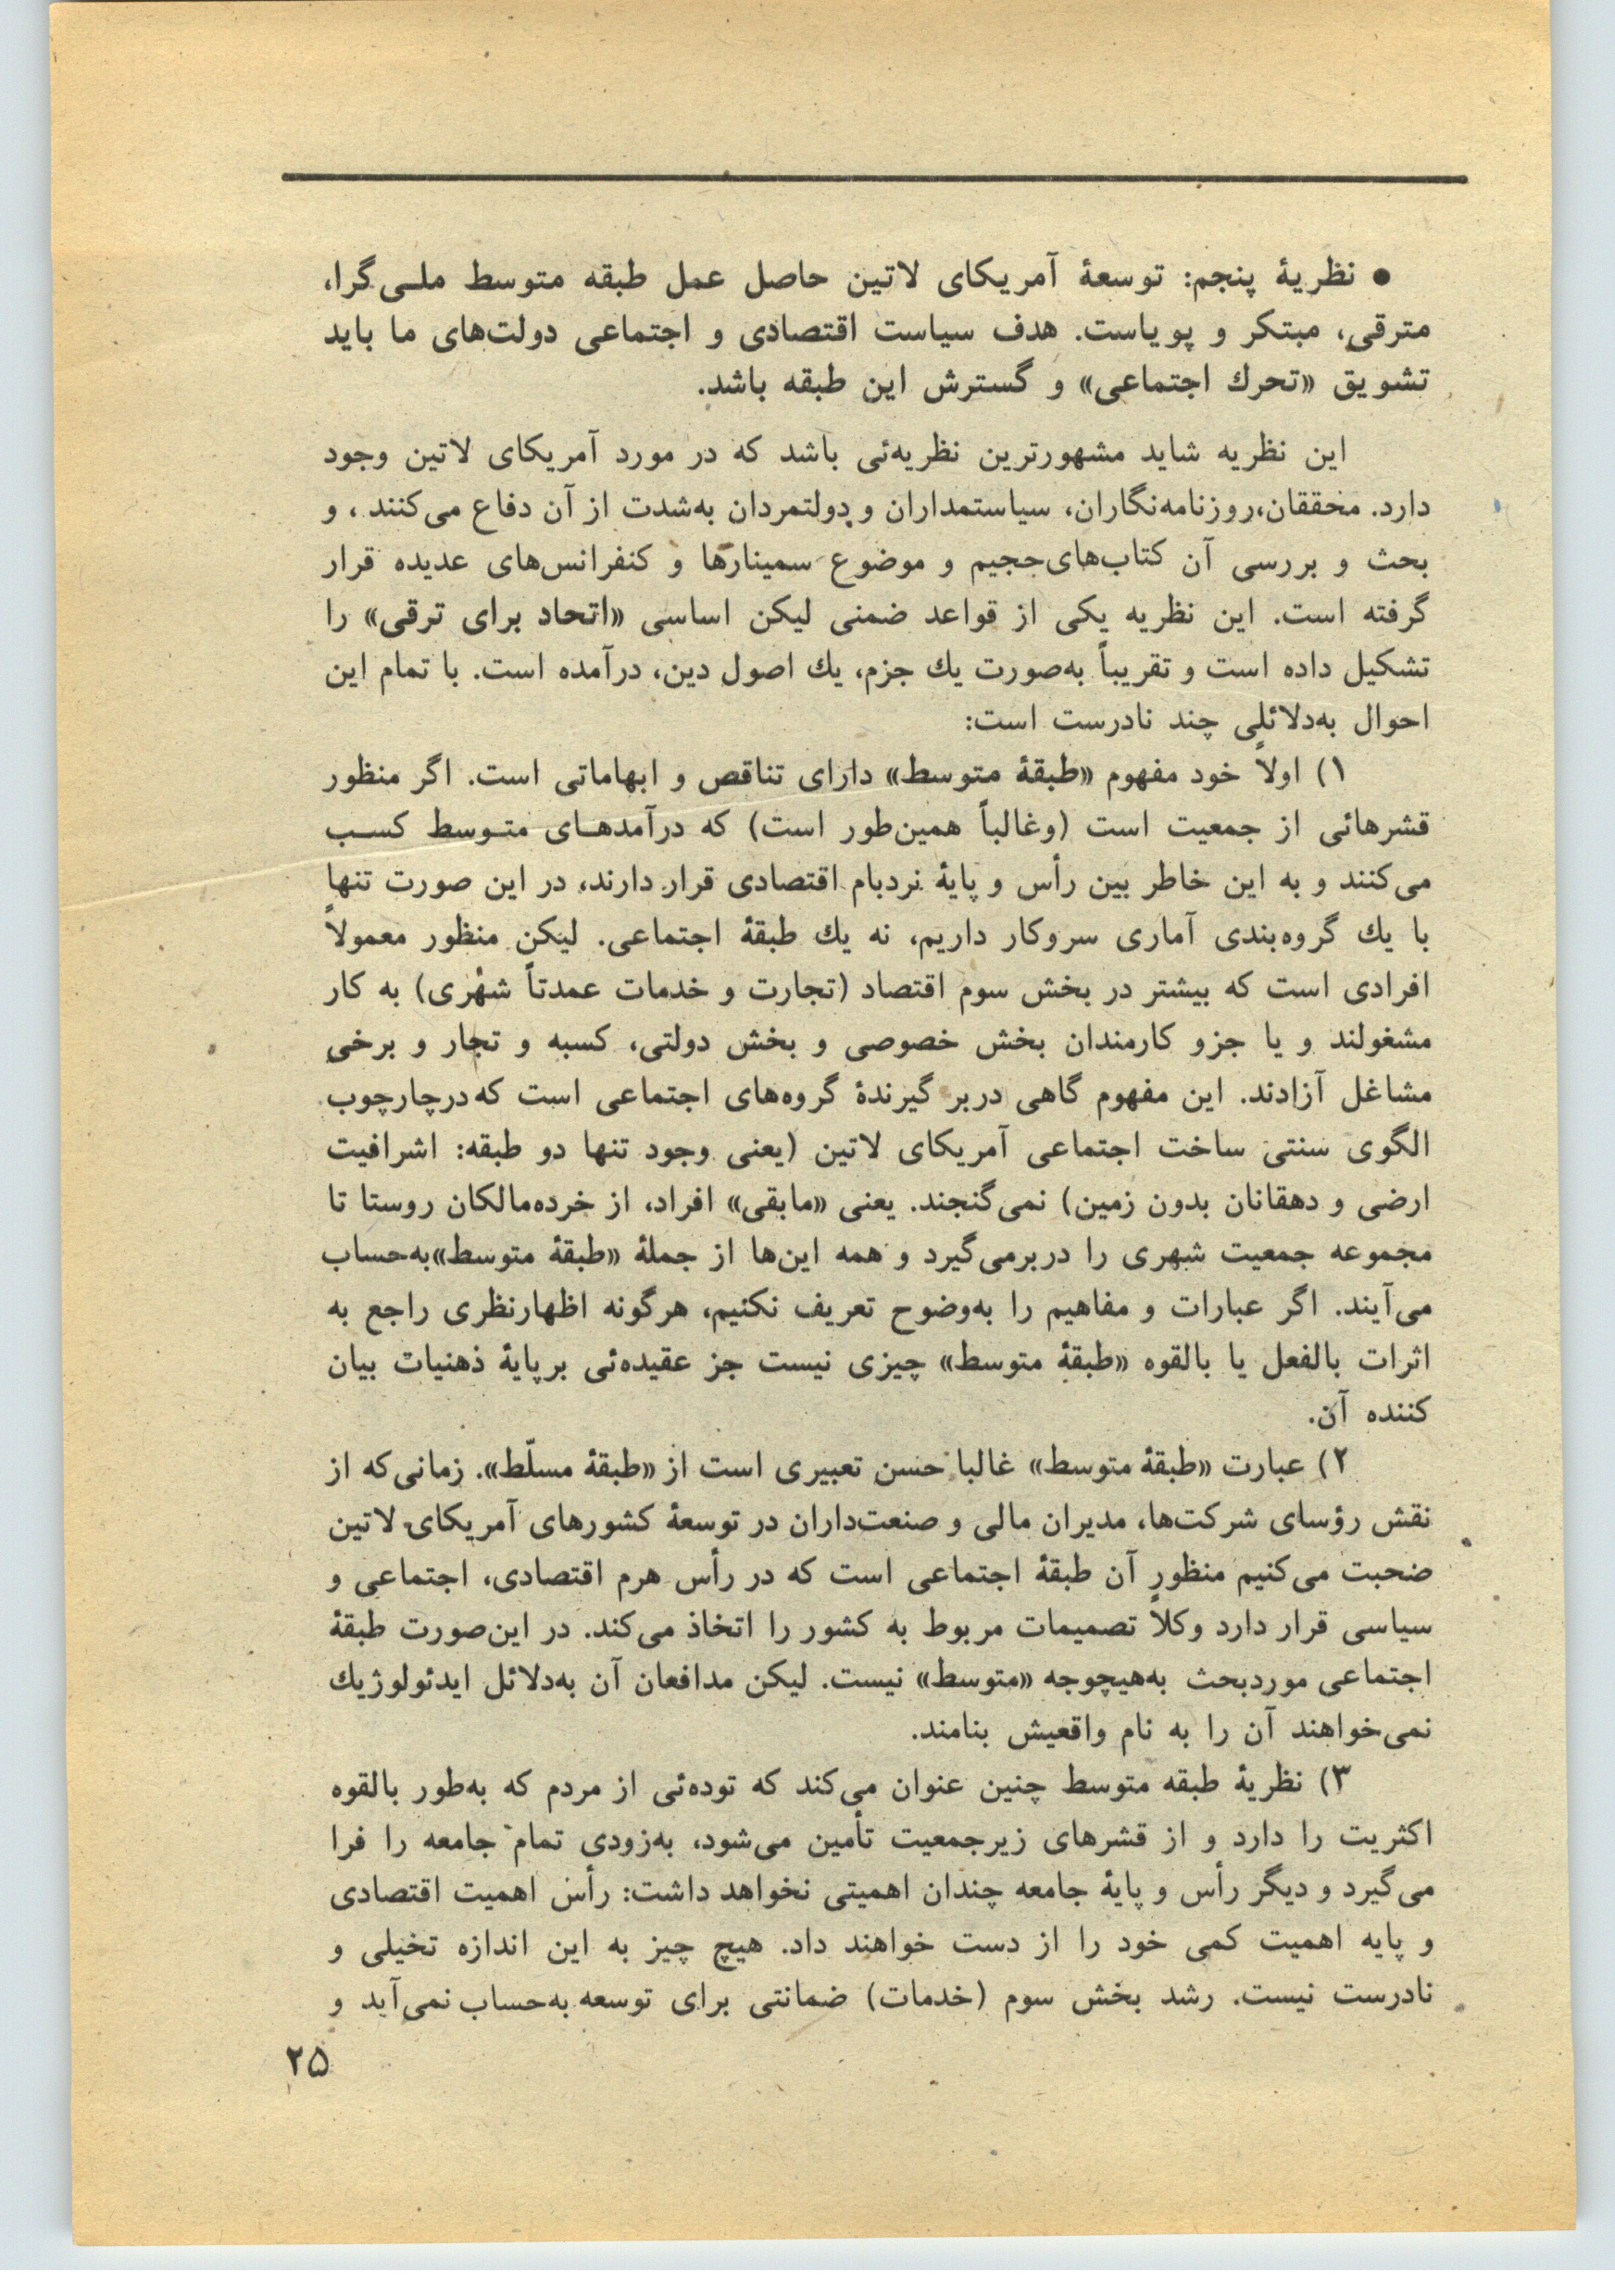 ● نظریهٔ پنجم: توسعهٔ آمریکای لاتین حاصل عمل طبقه متوسط ملی‌گرا،
مترقی، مبتکر و پویاست. هدف سیاست اقتصادی و اجتماعی دولت‌های ما باید
تشویق «تحرك اجتماعی» و گسترش این طبقه باشد.
این نظریه شاید مشهورترین نظریه‌ئی باشد که در مورد آمریکای لاتین وجود
دارد. محققان،روزنامه‌نگاران، سیاستمداران و دولتمردان به‌شدت از آن دفاع می‌کنند ، و
بحث و بررسی آن کتاب‌های‌حجیم و موضوع سمینارها و کنفرانس‌های عدیده قرار
گرفته است. این نظریه یکی از قواعد ضمنی لیکن اساسی «اتحاد برای ترقی» را
تشکیل داده است و تقریباً به‌صورت یك جزم، یك اصول دین، درآمده است. با تمام این
احوال به‌دلائلی چند نادرست است:
۱) اولاً خود مفهوم «طبقهٔ متوسط» دارای تناقص و ابهاماتی است. اگر منظور
قشرهائی از جمعیت است (وغالباً همین‌طور است) که درآمدهای متوسط کسب
می‌کنند و به این خاطر بین رأس و پایهٔ نردبام اقتصادی قرار دارند، در این صورت تنها
با یك گروه‌بندی آماری سروکار داریم، نه یك طبقهٔ اجتماعی. لیکن منظور معمولاً
افرادی است که بیشتر در بخش سوم اقتصاد (تجارت و خدمات عمدتاً شهری) به کار
مشغولند و یا جزو کارمندان بخش خصوصی و بخش دولتی، کسبه و تجار و برخی
مشاغل آزادند. این مفهوم گاهی دربر گیرندهٔ گروه‌های اجتماعی است که‌درچارچوب
الگوی سنتی ساخت اجتماعی آمریکای لاتین (یعنی وجود تنها دو طبقه: اشرافیت
ارضی و دهقانان بدون زمین) نمی‌گنجند. یعنی «مابقی» افراد، از خرده‌مالکان روستا تا
مجموعه جمعیت شهری را دربرمی‌گیرد و همه این‌ها از جملهٔ «طبقهٔ متوسط»به‌حساب
می‌آیند. اگر عبارات و مفاهیم را به‌وضوح تعریف نکنیم، هرگونه اظهارنظری راجع به
اثرات بالفعل یا بالقوه «طبقهٔ متوسط» چیزی نیست جز عقیده‌ئی برپایهٔ ذهنیات بیان
کننده آن.
۲) عبارت «طبقهٔ متوسط» غالبا حسن تعبیری است از «طبقهٔ مسلّط». زمانی‌که از
نقش رؤسای شرکت‌ها، مدیران مالی و صنعت‌داران در توسعهٔ کشورهای آمریکای لاتین
صحبت می‌کنیم منظور آن طبقهٔ اجتماعی است که در رأس هرم اقتصادی، اجتماعی و
سیاسی قرار دارد وکلاً تصمیمات مربوط به کشور را اتخاذ می‌کند. در این‌صورت طبقهٔ
اجتماعی موردبحث به‌هیچوجه «متوسط» نیست. لیکن مدافعان آن به‌دلائل ایدئولوژیك
نمی‌خواهند آن را به نام واقعیش بنامند.
۳) نظریهٔ طبقه متوسط چنین عنوان می‌کند که توده‌ئی از مردم که به‌طور بالقوه
اکثریت را دارد و از قشرهای زیرجمعیت تأمین می‌شود، به‌زودی تمام جامعه را فرا
می‌گیرد و دیگر رأس و پایهٔ جامعه چندان اهمیتی نخواهد داشت: رأس اهمیت اقتصادی
و پایه اهمیت کمی خود را از دست خواهند داد. هیچ چیز به این اندازه تخیلی و
نادرست نیست. رشد بخش سوم (خدمات) ضمانتی برای توسعه به‌حساب نمی‌آید و
۲۵